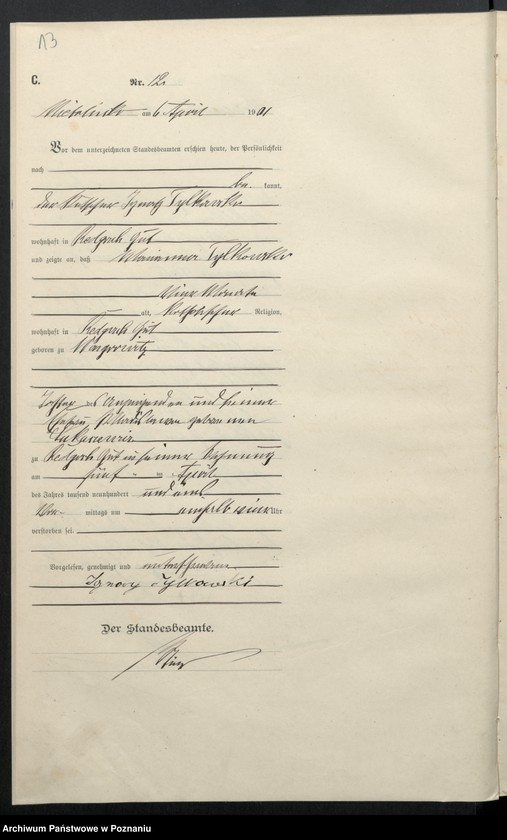 13
C.
Nr. 12.
am 6 April 1901
Vor dem unterzeichneten Standesbeamten erschien heute, der Persönlichkeit
nach
be kannt,
der Kutscher Ignatz Tylkowski
wohnhaft in Redgosch Gut
und zeigte an, daß Marianna Tylkowski
vier Monate
alt, katholischer Religion,
wohnhaft in Redgosch Gut
geboren zu
Tochter des Anzeigenden und seiner
Ehefrau geborenen
zu Redgosch Gut in seiner Wohnung
am fünf ten April
des Jahres tausend neunhundert und eins
Vor mittags um Uhr
verstorben sei.
Vorgelesen, genehmigt und unterschrieben
Ignacy Tylkowski
Der Standesbeamte.
Archiwum Państwowe w Poznaniu